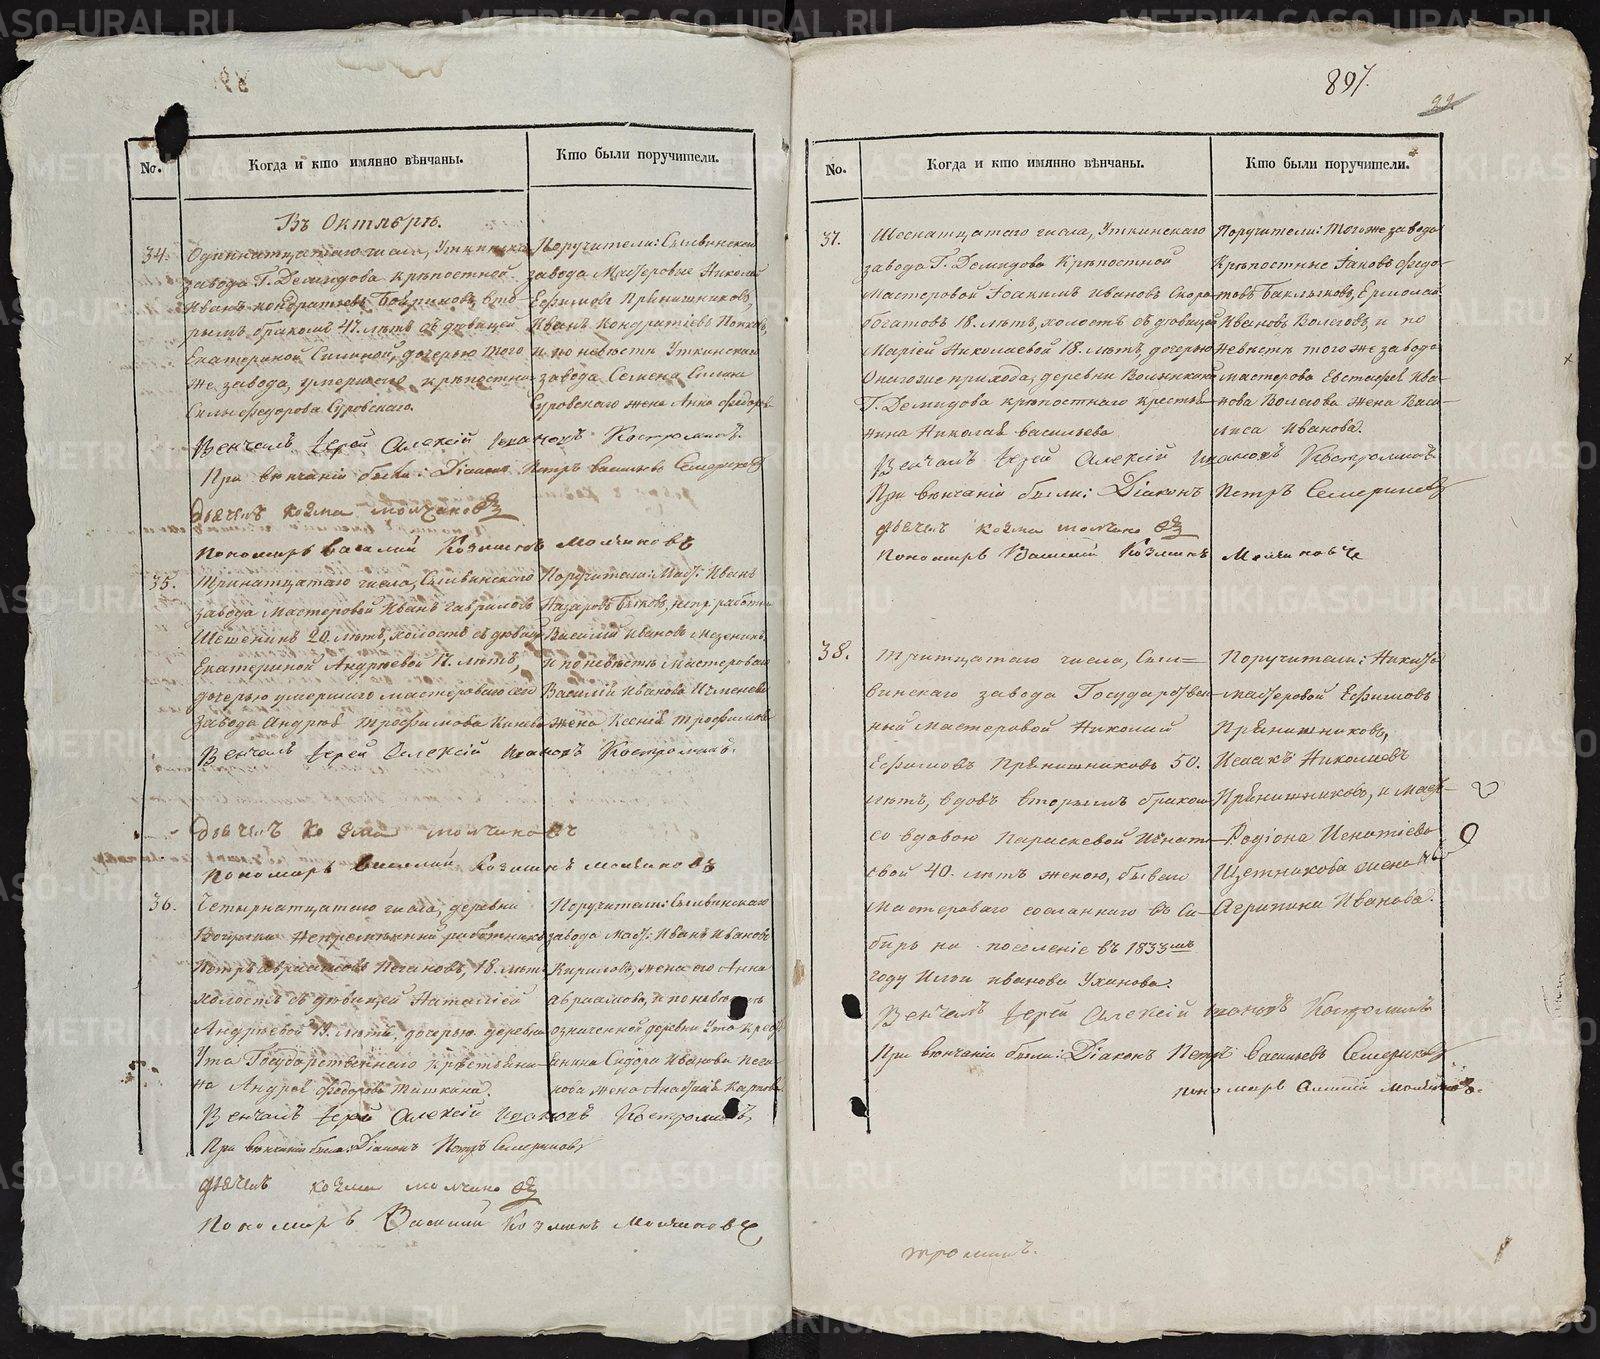 897.
22.
No.
Когда и кто имянно вѣнчаны.
Кто были поручители.
Въ Октябрѣ.
34.
Одиннатцатаго числа, Уткинскаго
завода Г. Демидова крѣпостной
Иванъ Кондратьевъ вто-
рымъ бракомъ 47. лѣтъ съ дѣвицей
Екатериной Силиной, дочерью того
же завода, умершаго крѣпостна-
Силы Федорова Суровскаго.
Поручители: Сылвинскаго
завода Мастеровые Николай
Ефимовъ Прянишниковъ,
Иванъ Кондратіевъ Попковъ,
и по невѣстѣ Уткинскаго
завода Семена Силина
Суровскаго жена Анна Федоров-
Венчалъ Іерей Алексій Іоанновъ Костроминъ.
При вѣнчаніи были: Діаконъ Петръ Васильевъ Семериковъ
дьячекъ козма молчановъ
пономарь василий Козминъ молчановъ
35.
тринатцатаго числа, Сылвинскаго
завода Мастеровой Иванъ Гавриловъ
Шешенинъ 20. лѣтъ, холостъ съ дѣвицей
Екатериной Андреевой 17. лѣтъ,
дочерью умершаго мастероваго сего
завода Андрея Трофимова
Поручители: Маст: Иванъ
Назаровъ Быковъ, непр: работни
Василій Ивановъ Мезенинъ
и по невѣстѣ Мастероваго
Василія Иванова
жена Ксенія Трофимова
Венчалъ Іерей Алексій Іоанновъ Костроминъ.
дьячекъ козма молчановъ
пономарь василий Козминъ молчановъ
36.
Четырнатцатаго числа, деревни
непремѣнный работникъ
Петръ Авраамовъ Пегановъ, 18. лѣтъ
холостъ съ дѣвицей Наталіей
Андреевой 19. лѣтъ, дочерью деревни
Ута Государственнаго крестьяни-
на Андрея Федорова Тишкина.
Поручители: Сылвинскаго
завода Маст: Иванъ Ивановъ
Кириловъ, жена его Анна
Авраамова, и по невѣстѣ
означенной деревни Ута крест-
янина Сидора Иванова Пега-
нова жена Анастасія Карпова
Венчалъ Іерей Алексій Іоанновъ Костроминъ,
При вѣнчаніи были: Діаконъ Петръ Семериковъ
дьячекъ козма молчановъ
пономарь Василий Козминъ Молчановъ
No.
Когда и кто имянно вѣнчаны.
Кто были поручители.
37.
Шеснатцатаго числа, Уткинскаго
завода Г. Демидова Крѣпостной
Мастеровой Іоакимъ Ивановъ Скоро-
богатовъ 18. лѣтъ, холостъ съ дѣвицей
Маріей Николаевой 18. лѣтъ, дочерью
прихода, деревни
Г. Демидова крѣпостнаго крестья-
нина Николая Васильева
Поручители: Того же завода
Крѣпостные Іаковъ Федо-
товъ Баклыковъ, Ермолай
Ивановъ Волеговъ, и по
невѣстѣ того же завода
мастерова Евстафея Ива-
нова Волегова жена Васи-
лиса Иванова.
Венчалъ Іерей Алексій Іоанновъ Костроминъ
При вѣнчаніи были: Діаконъ Петръ Семериковъ
дьячекъ козма молчановъ
пономарь Василий Козминъ Молчановъ
38.
тритцатаго числа, Сыл-
винскаго завода Государствен-
ный мастеровой Николай
Ефимовъ Прянишниковъ 50.
лѣтъ, вдовъ вторымъ бракомъ
со вдовою Параскевой Игнатъ-
евой 40. лѣтъ женою, бывшаго
мастероваго сосланнаго въ Си-
бирь на поселеніе въ 1833мъ
году Ильи Иванова Уханова.
Поручители: Никита
мастеровой Ефимовъ
Прянишниковъ,
Исаакъ Николаевъ
Прянишниковъ, и маст-
Родіона Игнатіева
Щетникова жена
Агрипина Иванова.
Венчалъ Іерей Алексій Іоанновъ Костроминъ
При вѣнчаніи были: Діаконъ Петръ Васильевъ Семериковъ
пономарь Молчановъ.
троминъ.